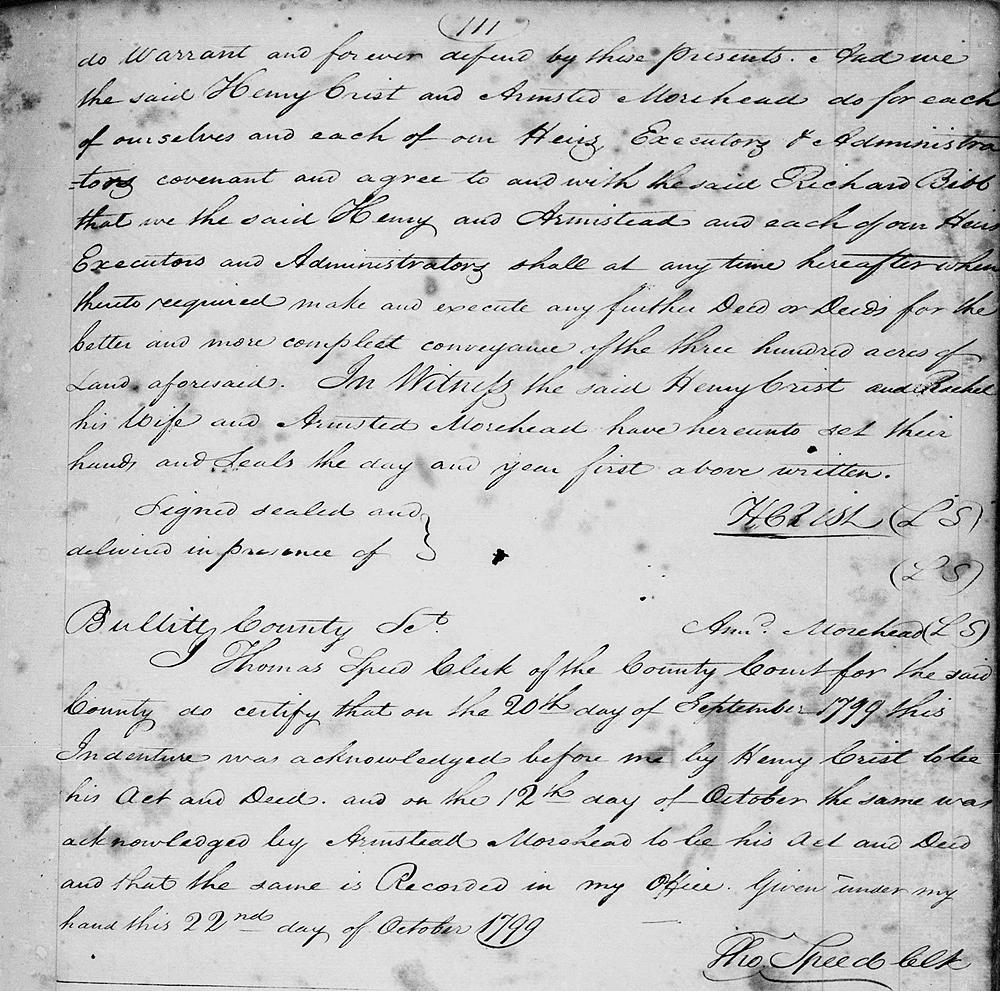 111
do Warrant and forever defend by these presents. And we
the said Henry Crist and Armsted Morehead do for each
of ourselves and each of our Heirs, Executors & Administra
-tors covenant and agree to and with the said Richard Bibb
that we the said Henry and Armistead and each of our Heirs
Executors and Administrators shall at any time hereafter when
thereto required make and execute any further Deed or Deeds for the
better and more compleet conveyance of the three hundred acres of
Land aforesaid. In Witness the said Henry Crist and Rachel
his Wife and Armsted Morehead have hereunto set their
hands and Seals the day and year first above written.
Signed sealed and } HCRist (L S)
delivered in presence of
(L S)
Bullitt County Sct. Armd. Morehead (L S)
I Thomas Speed Clerk of the County Court for the said
County do certify that on the 20th day of September 1799 this
Indenture was acknowledged before me by Henry Crist to be
his Act and Deed. and on the 12th day of October the same was
acknowledged by Armstead Morehead to be his Act and Deed
and that the same is Recorded in my Office. Given under my
hand this 22nd day of October 1799
Tho Speed Clk